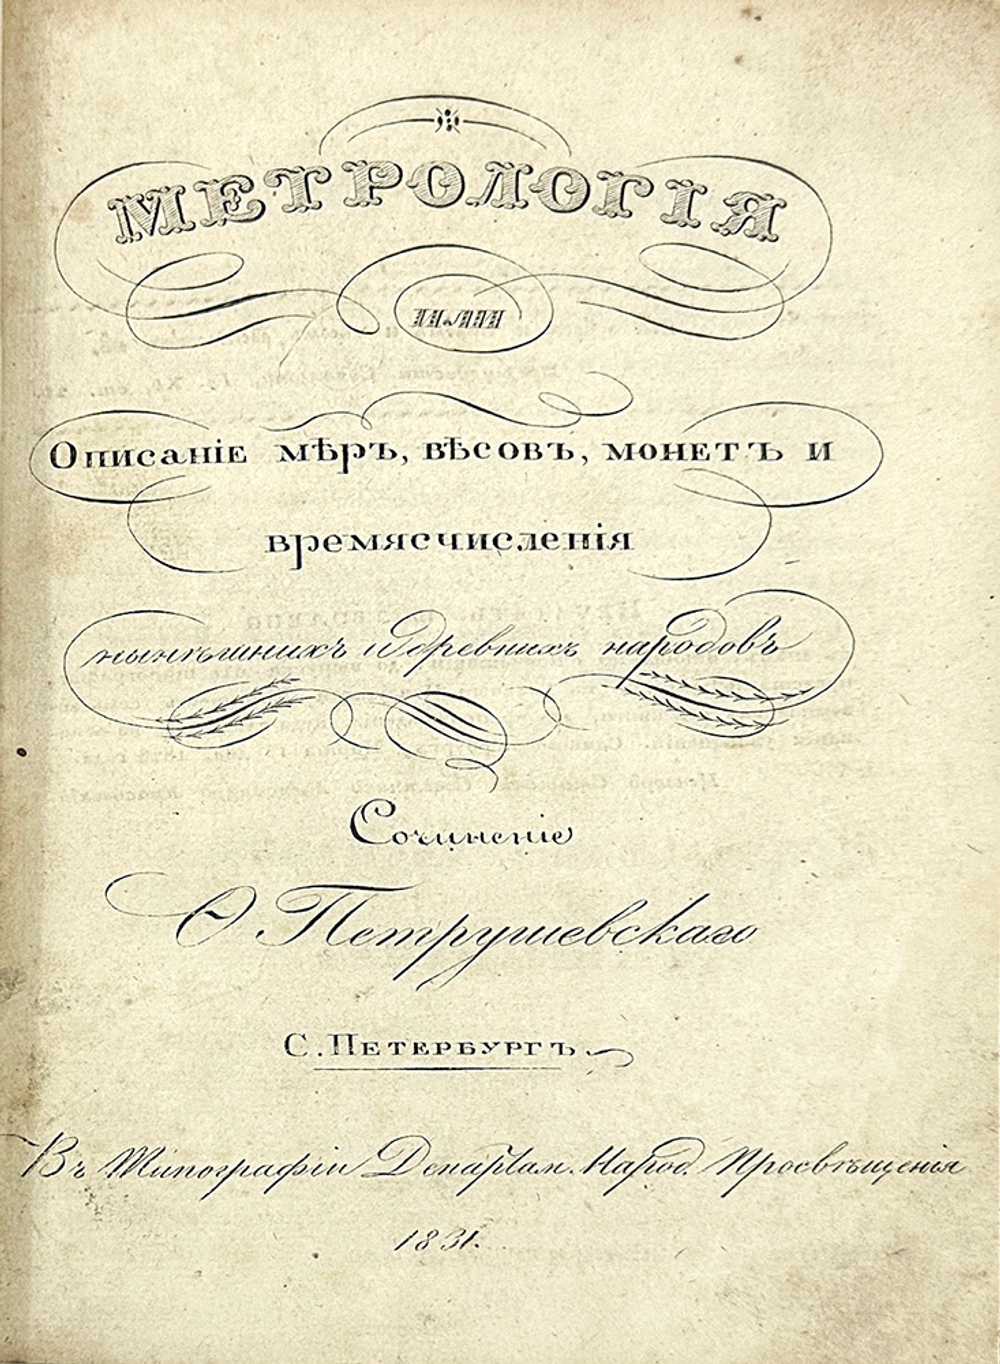 МЕТРОЛОГІЯ
ИЛИ
Описаніе мѣръ, вѣсовъ, монетъ и
времясчисленія
нынѣшнихъ и древнихъ народовъ
Сочиненіе
Ѳ. Петрушевскаго
С. Петербургъ
Въ Типографіи Департам. Народ. Просвѣщенія
1831.